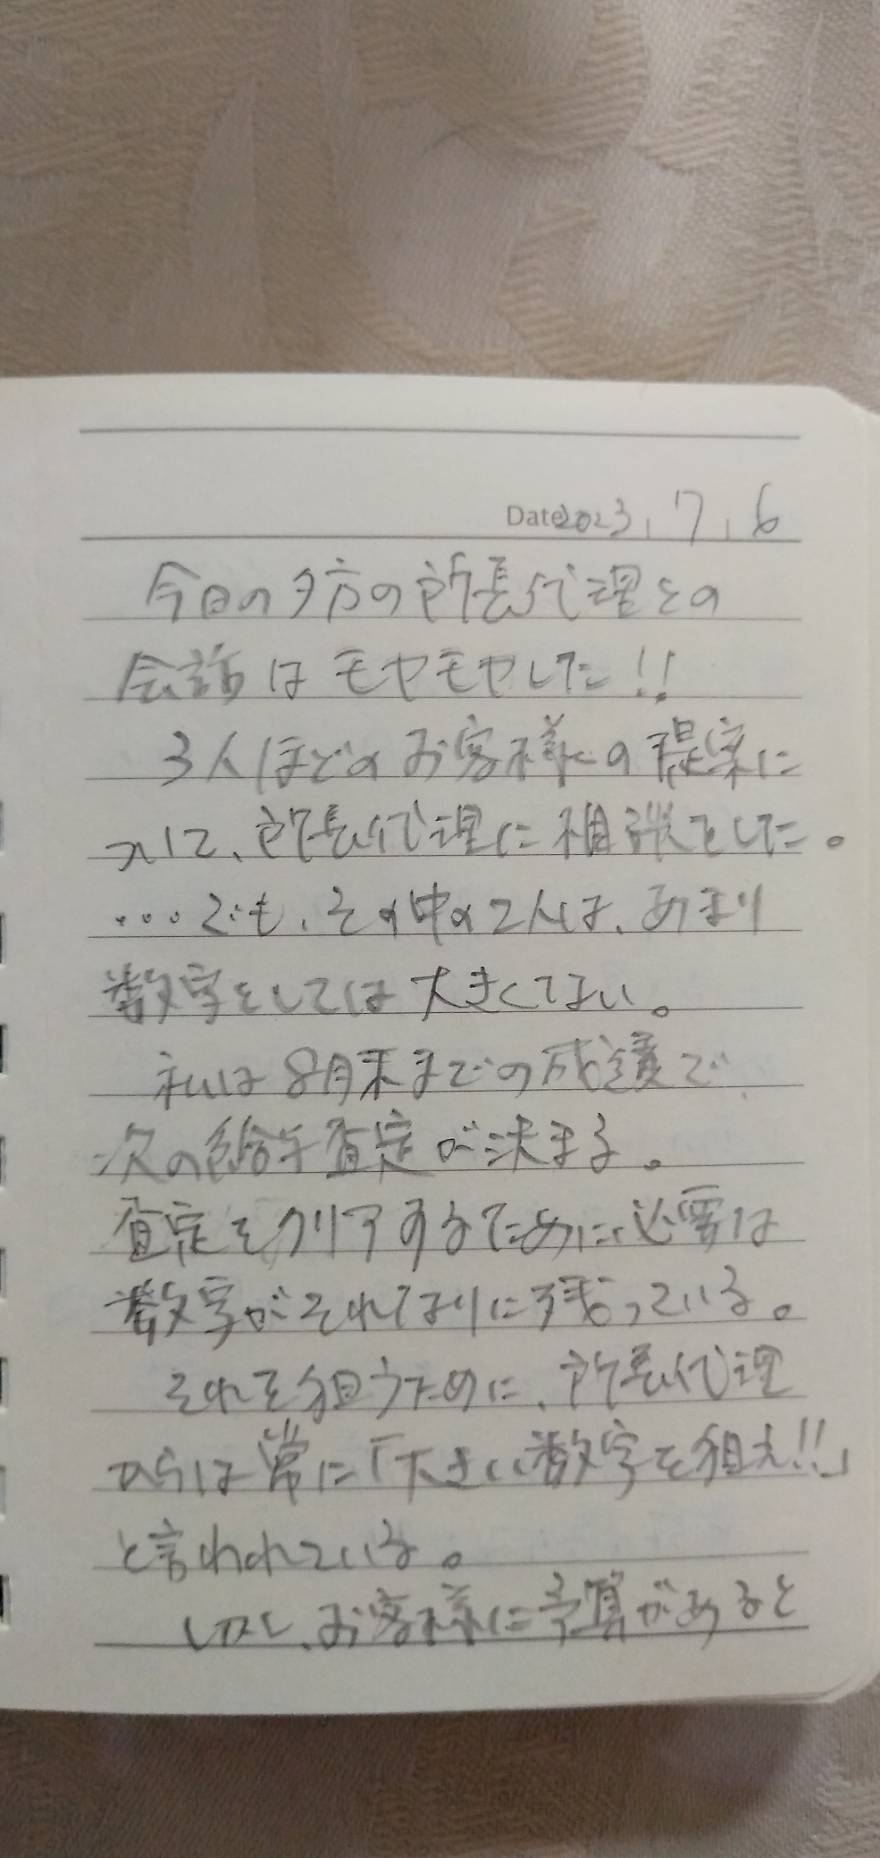 Date 2023, 7, 6
今日の夕方の所長代理との
会話はモヤモヤした!!
3人ほどのお客様への提案に
ついて、所長代理に相談をした。
…でも、その中の2人は、あまり
数字としては大きくない。
私は8月末までの成績で
次の給与査定が決まる。
査定をクリアするために必要は
数字がそれなりに残っている。
それを狙うために、所長代理
からは常に「大きい数字を狙え!!」
と言われている。
しかし、お客様に予算があると